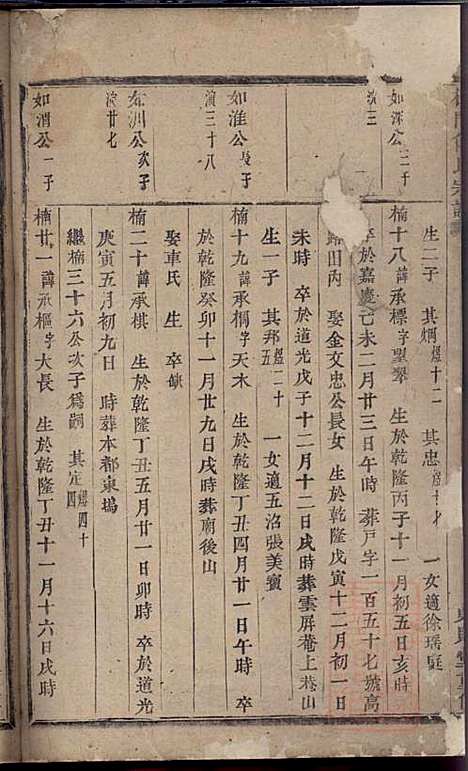 生二子 其炯煜十二 其忠煜十八 一女適徐瑤庭
如深公二子
楠十八諱承標字聖翠 生於乾隆丙子十一月初五日亥時
卒於嘉慶己未二月廿三日午時 葬戶字一百五十七號高
田內 娶金文忠公長女 生於乾隆戊寅十二月初一日
未時 卒於道光戊子十二月十二日戌時葬雲屏菴上菴山
生一子 其邦煜二十五 一女適五洺張美賓
如淮公長子
演三十八
楠十九諱承棡字天木 生於乾隆丁丑四月廿一日午時 卒
於乾隆癸卯十一月廿九日戌時葬廟後山
娶車氏 生 卒缺
如泗公次子
演廿七
楠二十諱承棋 生於乾隆丁丑五月廿一日卯時 卒於道光
庚寅五月初九日 時葬本都東塢
繼楠三十六公次子爲嗣 其定煜四十四
如渭公一子
楠廿一諱承樞字大長 生於乾隆丁丑十一月十六日戌時